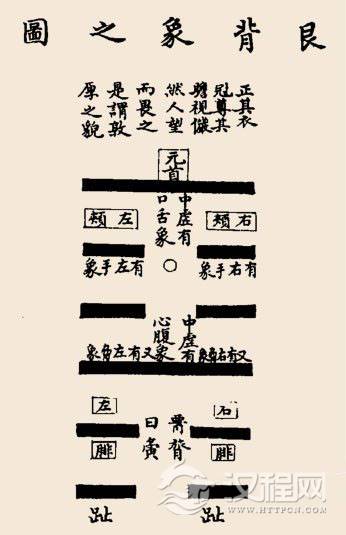 艮背象之圖
正其衣
冠尊其
瞻視儼
然人望
而畏之
是謂敦
厚之貌
元首
中虛有
口舌象
右頰
左頰
有右手象
有左手象
中虛有
心腹象
又有右
又有左
右
左
曰夤
腓
腓
趾
趾
汉程网